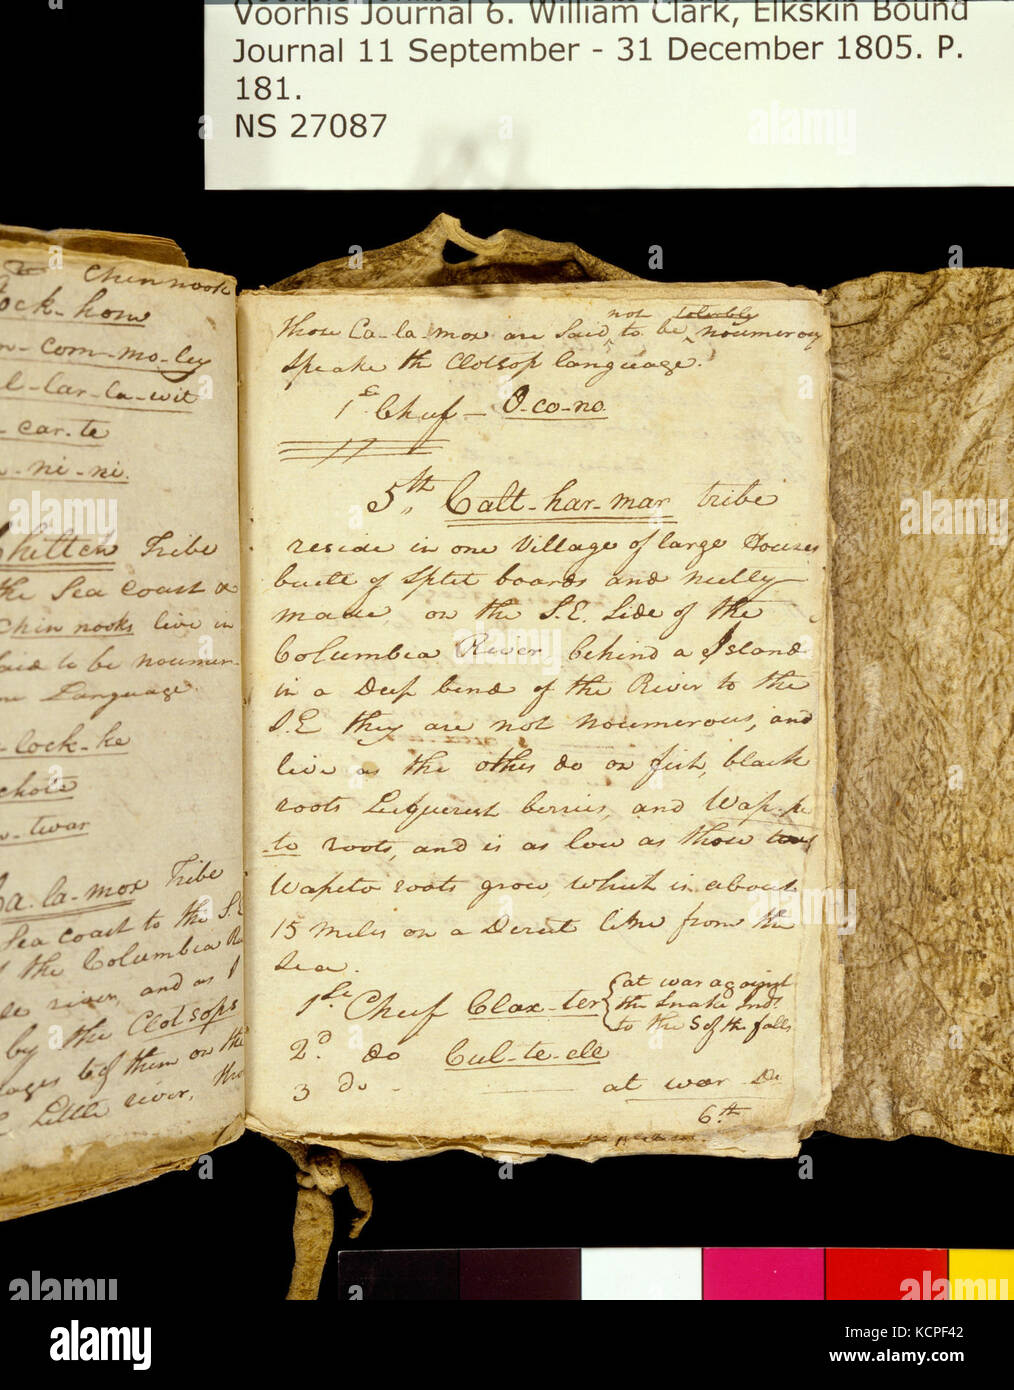 Voorhis Journal 6. William Clark, Elkskin Bound
Journal 11 September - 31 December 1805. P.
181.
NS 27087
Chinnook
ock-how
com-mo-ley
l-lar-la-wit
car-te
ni-ni.
hilten Tribe
the Sea Coast &
Chin nooks live in
Said to be noumer-
Language
lock-ke
chote
twar
a-la-mox Tribe
Sea Coast to the S.E
the Columbia
river, and as I
by the Clotsops
of them on the
Little river,
those Ca-la-mox are Said not to be tolerably noumerous
Speake the Clotsop language.
1st Chief - O-co-no
5th Calt-har-mar tribe
reside in one Village of large Houses
built of Split boards and neetly
made, on the S.E. Side of the
Columbia River behind a Island
in a Deep bend of the River to the
S.E they are not noumerous, and
live as the others do on fish, black
roots Lequerest berries, and Wap-pe
to roots, and is as low as those
Wapeto roots grow, which is about
15 Miles on a Derect line from the
Sea.
1st Cheif Clax-ter { at war against
the Snake Inds
to the S of the falls
2d do Cul-te-ele
3 do - at war
6th
alamy
Image ID: KCPF42
www.alamy.com